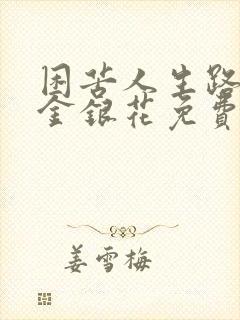 困苦人生路
金银花免費
姜雪梅